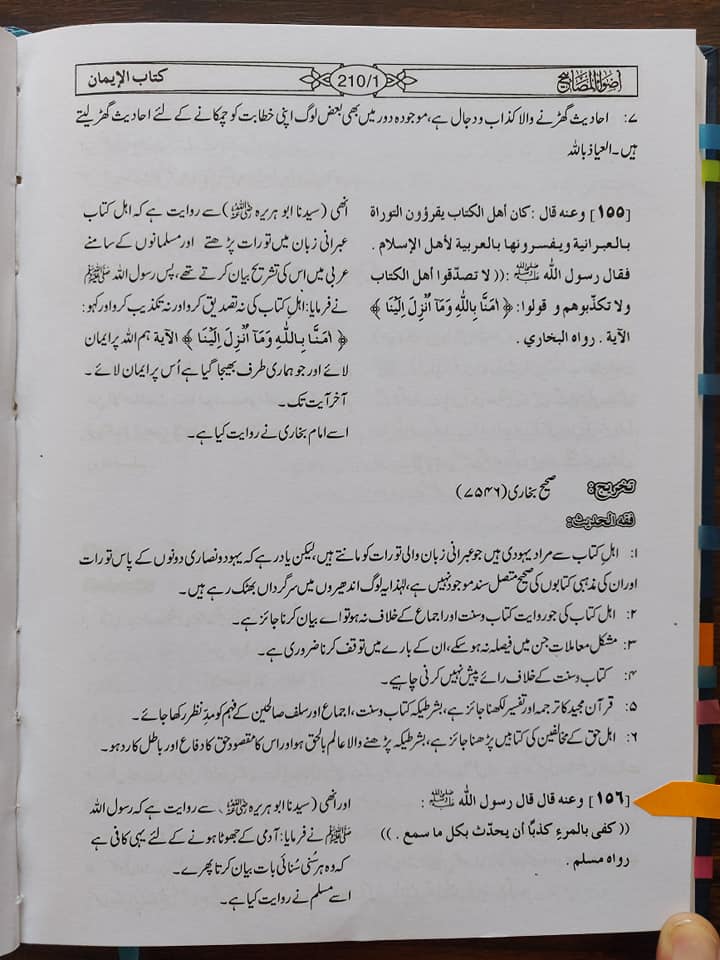 أضواء المصابيح
210/1
كتاب الإيمان
۷: احادیث گھڑنے والا کذاب و دجال ہے، موجودہ دور میں بھی بعض لوگ اپنی خطابت کو چمکانے کے لئے احادیث گھڑ لیتے
ہیں۔ العیاذ باللہ
[۱۵۵] وعنه قال : كان أهل الكتاب يقرؤون التوراة
بالعبرانية ويفسرونها بالعربية لأهل الإسلام .
فقال رسول الله ﷺ :(( لا تصدّقوا أهل الكتاب
ولا تكذّبوهم و قولوا: ﴿ اٰمَنَّا بِاللّٰهِ وَمَآ اُنْزِلَ اِلَيْنَا ﴾
الآية . رواه البخاري .
اُنھی (سیدنا ابو ہریرہ رضی اللہ عنہ) سے روایت ہے کہ اہل کتاب
عبرانی زبان میں تورات پڑھتے اور مسلمانوں کے سامنے
عربی میں اس کی تشریح بیان کرتے تھے، پس رسول اللہ ﷺ
نے فرمایا: اہلِ کتاب کی نہ تصدیق کرو اور نہ تکذیب کرو اور کہو:
﴿ اٰمَنَّا بِاللّٰهِ وَمَآ اُنْزِلَ اِلَيْنَا ﴾ الآية ہم اللہ پر ایمان
لائے اور جو ہماری طرف بھیجا گیا ہے اُس پر ایمان لائے ۔
آخر آیت تک۔
اسے امام بخاری نے روایت کیا ہے۔
تخریج: صحیح بخاری (۷۵۴۶)
فقه الحديث:
۱: اہلِ کتاب سے مراد یہودی ہیں جو عبرانی زبان والی تورات کو مانتے ہیں، لیکن یاد رہے کہ یہود و نصاریٰ دونوں کے پاس تورات
اور ان کی مذہبی کتابوں کی صحیح متصل سند موجود نہیں ہے، لہٰذا یہ لوگ اندھیروں میں سرگرداں بھٹک رہے ہیں۔
۲: اہل کتاب کی جو روایت کتاب و سنت اور اجماع کے خلاف نہ ہو تو اسے بیان کرنا جائز ہے۔
۳: مشکل معاملات جن میں فیصلہ نہ ہو سکے، ان کے بارے میں توقف کرنا ضروری ہے۔
۴: کتاب و سنت کے خلاف رائے پیش نہیں کرنی چاہیے۔
۵: قرآن مجید کا ترجمہ اور تفسیر لکھنا جائز ہے، بشرطیکہ کتاب و سنت، اجماع اور سلف صالحین کے فہم کو مدِ نظر رکھا جائے۔
۶: اہل حق کے مخالفین کی کتابیں پڑھنا جائز ہے، بشرطیکہ پڑھنے والا عالم بالحق ہو اور اس کا مقصود حق کا دفاع اور باطل کا رد ہو۔
[۱۵۶] وعنه قال قال رسول الله ﷺ :
(( كفى بالمرءِ كذبًا أن يحدّث بكل ما سمع . ))
رواه مسلم .
اور انھی (سیدنا ابو ہریرہ رضی اللہ عنہ) سے روایت ہے کہ رسول اللہ
ﷺ نے فرمایا: آدمی کے جھوٹا ہونے کے لئے یہی کافی ہے
کہ وہ ہر سُنی سُنائی بات بیان کرتا پھرے۔
اسے مسلم نے روایت کیا ہے۔